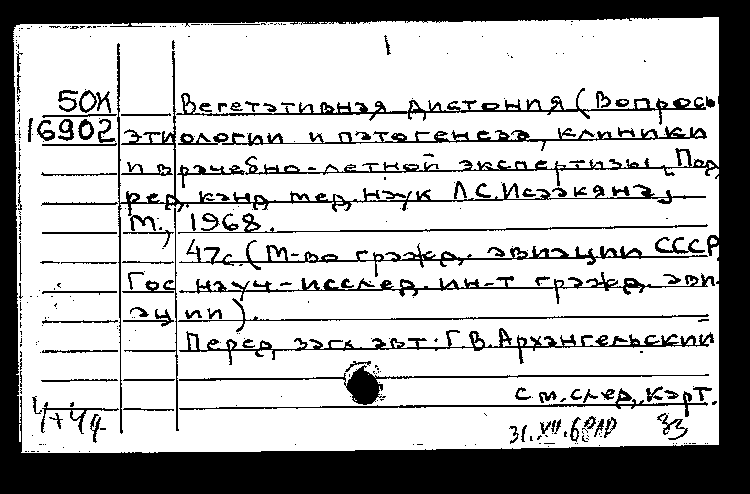 50К Вегетативная дистония (Вопросы
16902 этиологии и патогенеза, клиники
и врачебно-летной экспертизы. Под
ред. канд. мед. наук Л.С. Исаакяна.
М., 1968.
47с. (М-во гражд. авиации СССР.
Гос науч-исслед. ин-т гражд. ави-
ации).
Перед загл. авт: Г.В. Архангельский
см. след. карт.
31.XII.68